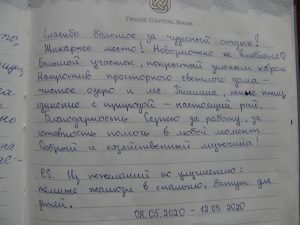 TRADE CAPITAL BANK
Спасибо большое за чудесный отдых!
Шикарное место! Невозможно не влюбиться♡
Большой участок, покрытый зеленым ковром
Напротив просторного светлого дома –
чистое озеро и лес. Тишина, пение птиц
единение с природой – настоящий рай.
Благодарность Сергею за работу, за
готовность помочь в любой момент
Добрый и хозяйственный мужчина!
P.S. Из пожеланий по улучшению:
тёмные жалюзи в спальню, батут для
детей.
08.05.2020 – 12.05.2020